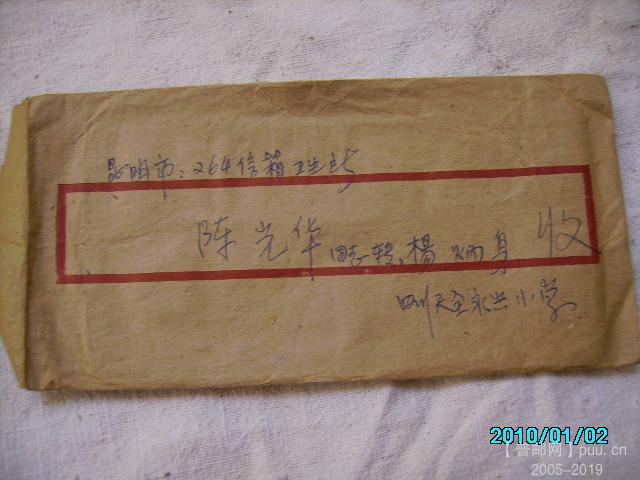 昆明市：264信箱卫生所
陈光华同志转：楊炳身 收
四川天全永兴小学
2010/01/02
【普邮网】puu.cn
2005-2019